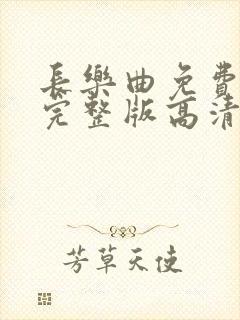 長樂曲免費
完整版高清
芳草天使